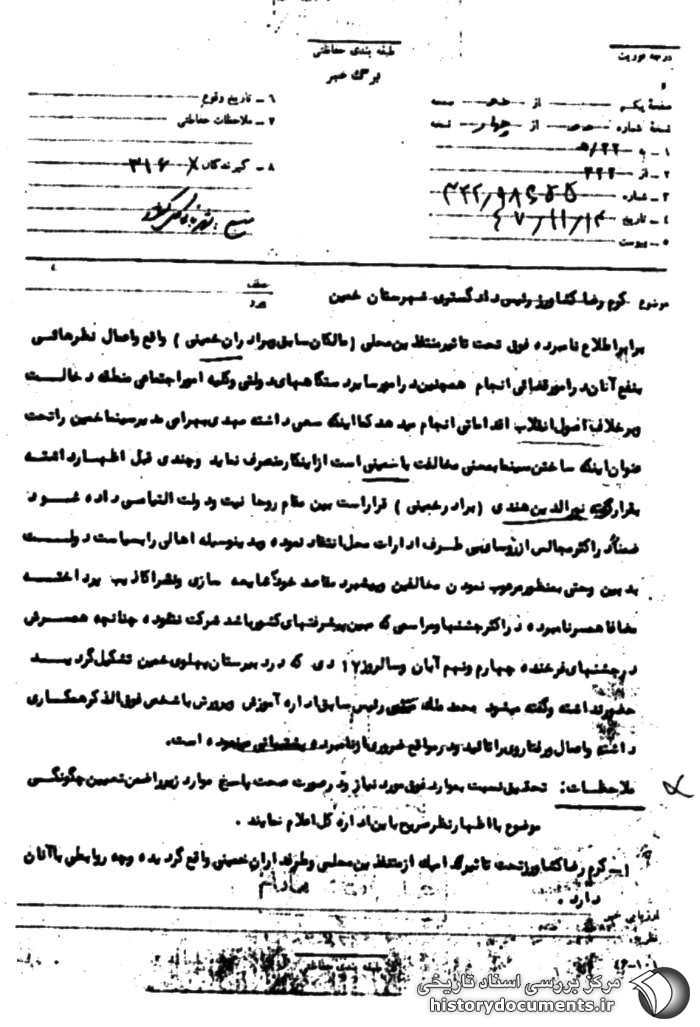 طبقه بندی حفاظتی
درجه فوریت
برگ خبر
صفحهٔ یکم از صفحه
نسخهٔ شماره از چهار نسخه
۱ ـ به ۲۲/ﻫ
۲ ـ از ۳۲۲
۳ ـ شماره
۴ ـ تاریخ ۴۷/۱۱/۱۴
۵ ـ پیوست
۶ ـ تاریخ وقوع
۷ ـ ملاحظات حفاظتی
۸ ـ گیرندگان ۳۱۶
موضوع کرم رضا کشاورز رئیس دادگستری شهرستان خمین
عطف
پیرو
برابر اطلاع نامبرده فوق تحت تاثیر متنفذین محلی (مالکان سابق وبرادران خمینی) واقع واعمال نظرهائی
بنفع آنان در امور قضائی انجام همچنین در امور سایر دستگاههای دولتی وکلیه امور اجتماعی منطقه دخالت
وبرخلاف اصول انقلاب اقداماتی انجام میدهد کما اینکه سعی داشته مهدی بهرامی مدیر سینما خمین را تحت
عنوان اینکه ساختن سینما بمعنی مخالفت با خمینی است از اینکار منصرف نماید وچندی قبل اظهار داشته
بقرار گفته نورالدین هندی (برادر خمینی) قرار است بین مقام روحانیت ودولت التیامی داده شود
ضمنا در اکثر مجالس از روسای بی طرف ادارات محل انتقاد نموده وبدینوسیله اهالی را بسیاست دولت
بدبین وحتی بمنظور مرعوب نمودن مخالفین وپیشبرد مقاصد خود شایعه سازی ونشر اکاذیب پرداخته
مضافا همسر نامبرده در اکثر جشنها ومراسمی که مبین پیشرفتهای کشور باشد شرکت ننموده چنانچه همسرش
در جشنهای فرخنده چهارم ونهم آبان وسالروز ۱۷ دی که در دبیرستان پهلوی خمین تشکیل گردید
حضور نداشته وگفته میشود محمد ملک رئیس سابق اداره آموزش وپرورش با شخص فوق الذکر همکاری
داشته واعمال ورفتار وی را تائید ودر مواقع ضروری از نامبرده پشتیبانی مینموده است.
ملاحظات: تحقیق نسبت بموارد فوق مورد نیاز ودر صورت صحت پاسخ موارد زیر را ضمن تعیین چگونگی
موضوع با اظهار نظر صریح باین اداره کل اعلام نمایند.
۱ـ کرم رضا کشاورز تحت تاثیر کدامیک از متنفذین محلی وطرفداران خمینی واقع گردیده وچه روابطی با آنان
دارد.
ارزیابی خبر
نظریه
طبقه بندی حفاظتی
مرکز بررسی اسناد تاریخی
historydocuments.ir